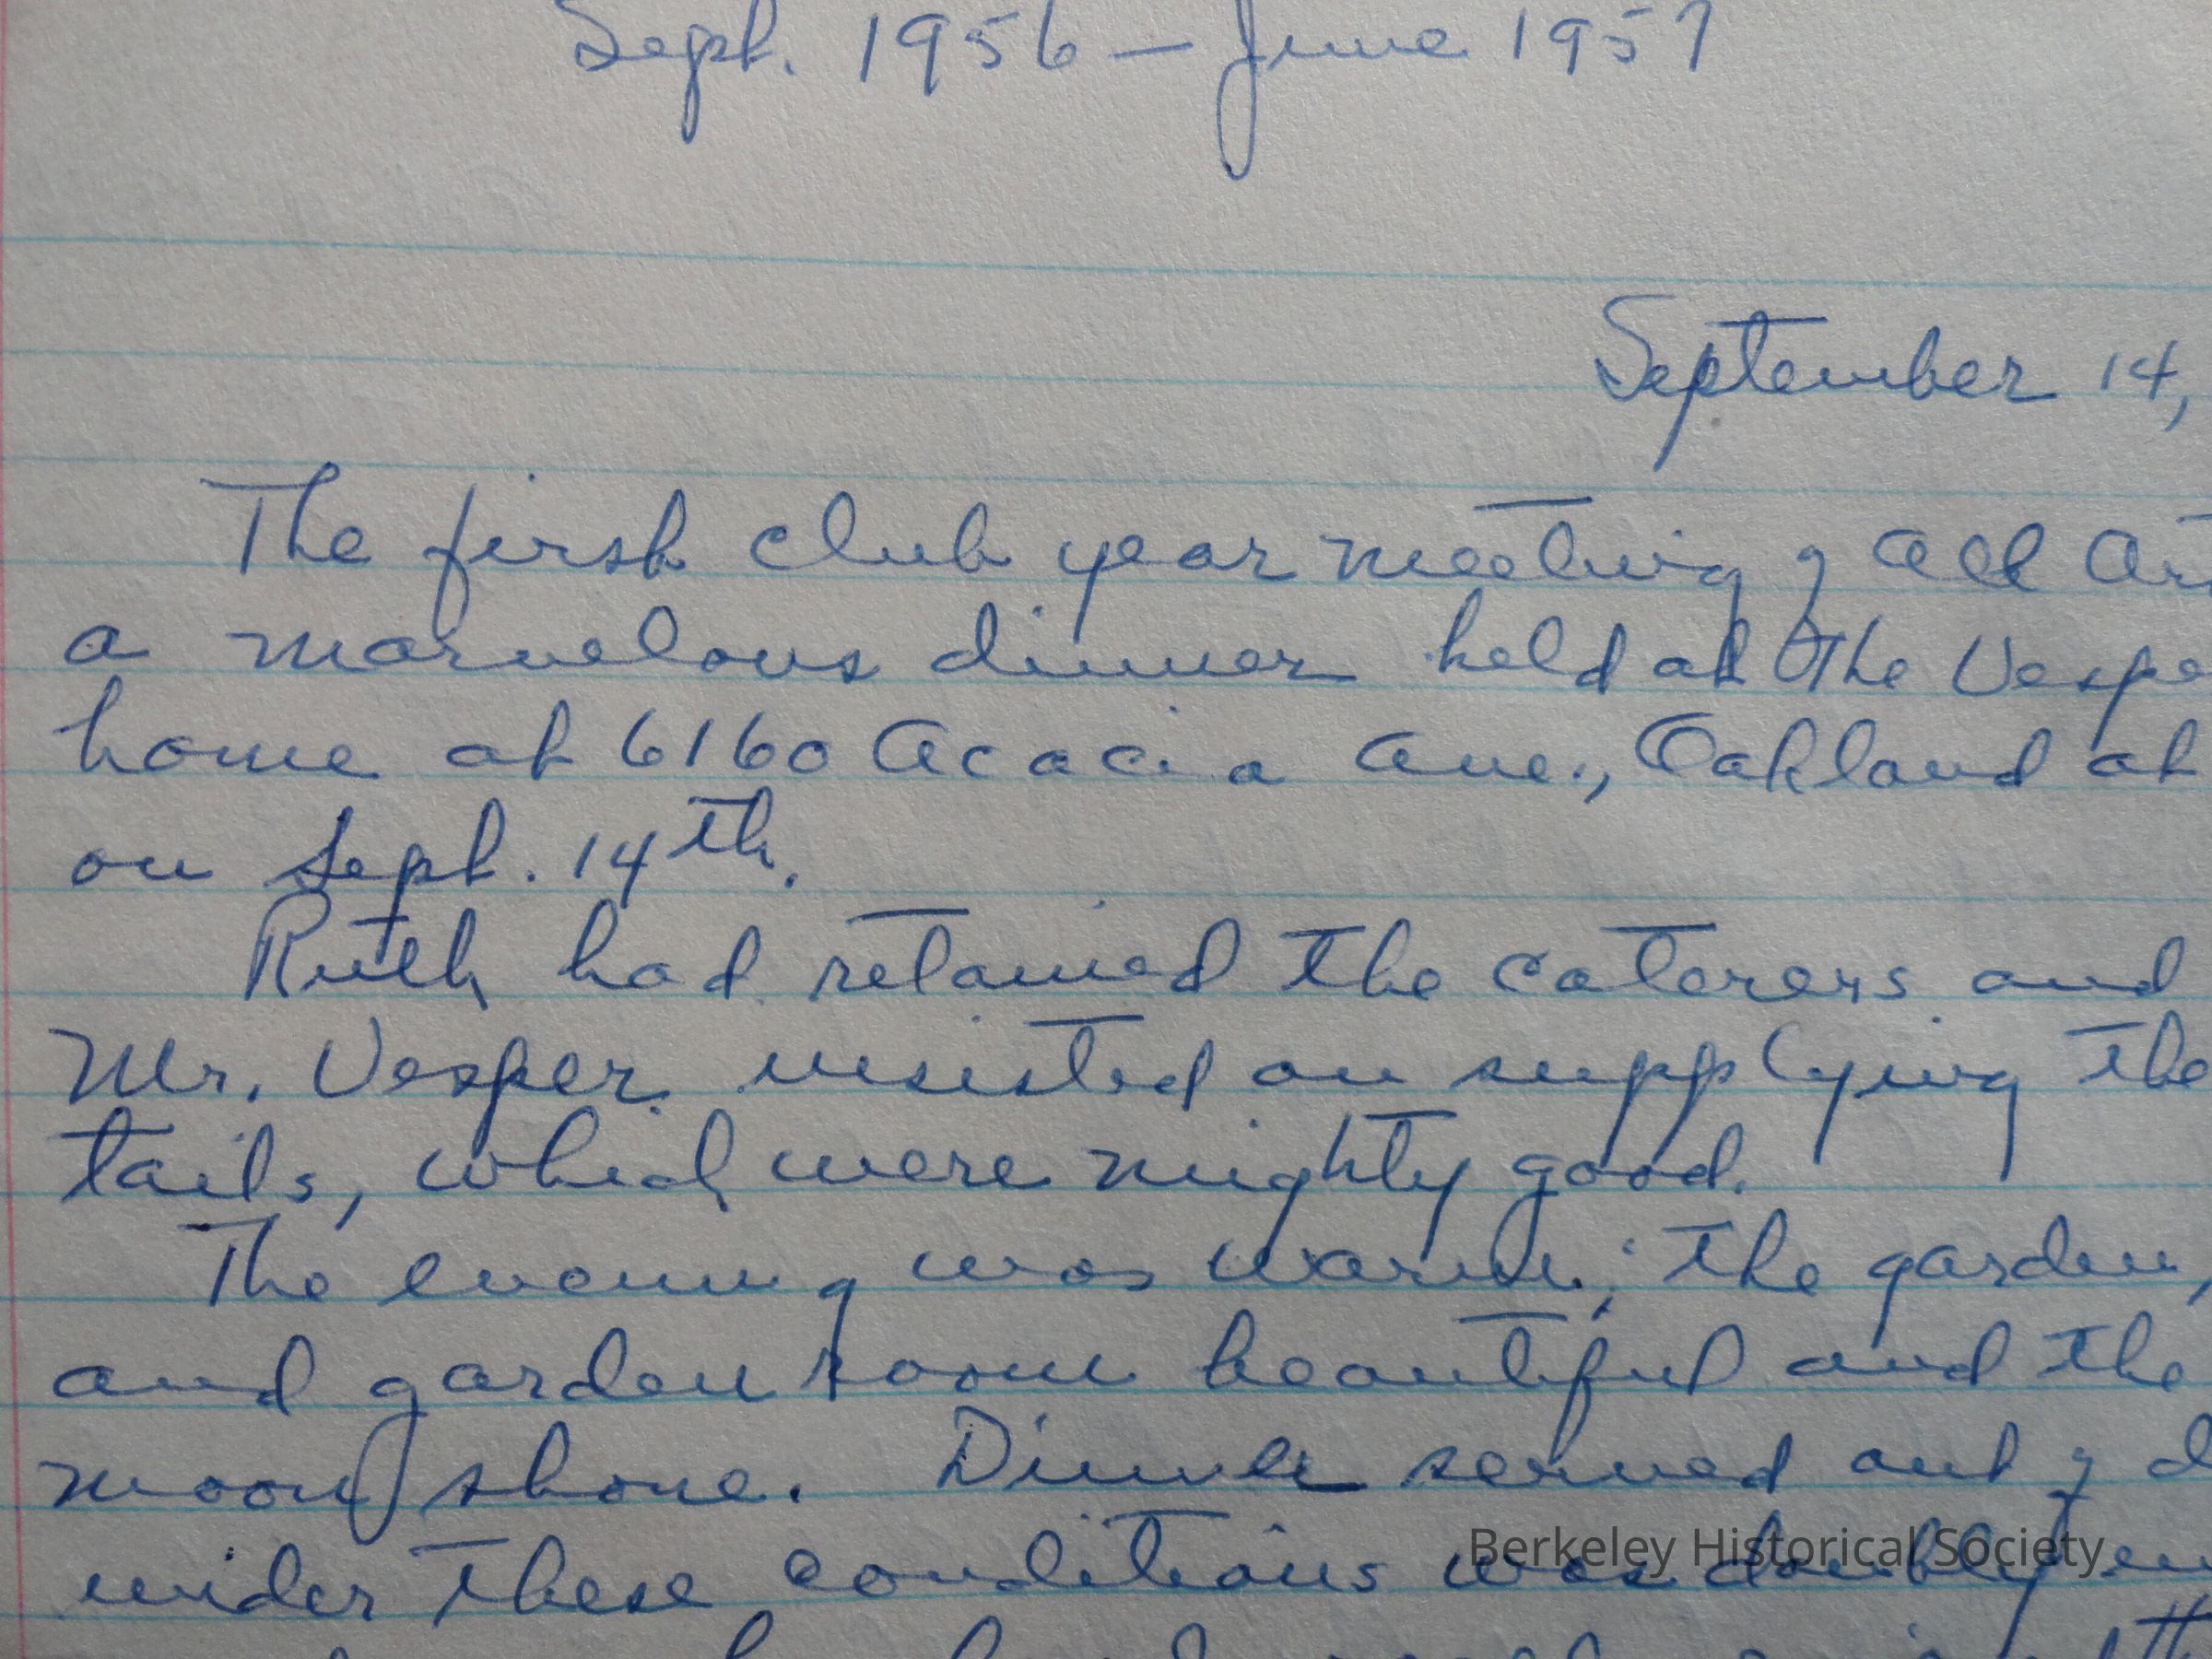 Sept. 1956 — June 1957
September 14,
The first club year meeting of All
a marvelous dinner held at the Vespe
home at 6160 Acacia Ave., Oakland at
on Sept. 14th.
Ruth had retained the caterers and
Mr. Vesper insisted on supplying the
tails, which were mighty good.
The evening was warm; the garden,
and garden room beautiful and the
moon shone. Dinner served out of d
under these conditions was doubly en
Berkeley Historical Society